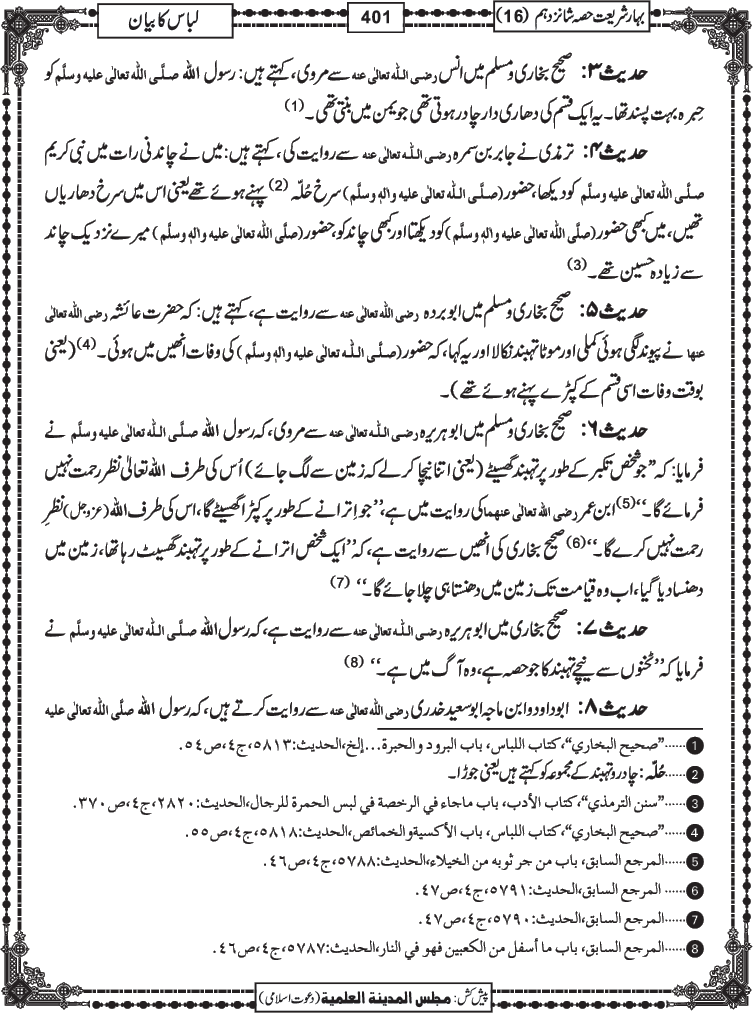 بہار شریعت حصہ شانزدہم (16)
401
لباس کا بیان
حدیث ۳: صحیح بخاری و مسلم میں انس رضی اللہ تعالٰی عنہ سے مروی، کہتے ہیں: رسول اللہ صلَّی اللہ تعالٰی علیہ وسلَّم کو
حِبرہ بہت پسند تھا۔ یہ ایک قسم کی دھاری دار چادر ہوتی تھی جو یمن میں بنتی تھی۔ (1)
حدیث ۴: ترمذی نے جابر بن سمرہ رضی اللہ تعالٰی عنہ سے روایت کی، کہتے ہیں: میں نے چاندنی رات میں نبی کریم
صلَّی اللہ تعالٰی علیہ وسلَّم کو دیکھا، حضور (صلَّی اللہ تعالٰی علیہ واٰلہٖ وسلَّم) سرخ حُلّہ (2) پہنے ہوئے تھے یعنی اس میں سرخ دھاریاں
تھیں، میں کبھی حضور (صلَّی اللہ تعالٰی علیہ واٰلہٖ وسلَّم) کو دیکھتا اور کبھی چاند کو، حضور (صلَّی اللہ تعالٰی علیہ واٰلہٖ وسلَّم) میرے نزدیک چاند
سے زیادہ حسین تھے۔ (3)
حدیث ۵: صحیح بخاری و مسلم میں ابو بردہ رضی اللہ تعالٰی عنہ سے روایت ہے، کہتے ہیں: کہ حضرت عائشہ رضی اللہ تعالٰی
عنہا نے پیوند لگی ہوئی کملی اور موٹا تہبند نکالا اور یہ کہا، کہ حضور (صلَّی اللہ تعالٰی علیہ واٰلہٖ وسلَّم) کی وفات انھیں میں ہوئی۔ (4) (یعنی
بوقت وفات اسی قسم کے کپڑے پہنے ہوئے تھے)۔
حدیث ۶: صحیح بخاری و مسلم میں ابو ہریرہ رضی اللہ تعالٰی عنہ سے مروی، کہ رسول اللہ صلَّی اللہ تعالٰی علیہ وسلَّم نے
فرمایا: کہ ”جو شخص تکبر کے طور پر تہبند گھسیٹے (یعنی اتنا نیچا کرلے کہ زمین سے لگ جائے) اُس کی طرف اللہ تعالٰی نظر رحمت نہیں
فرمائے گا۔“ (5) ابن عمر رضی اللہ تعالٰی عنہما کی روایت میں ہے، ”جو اِترانے کے طور پر کپڑا گھسیٹے گا، اس کی طرف اللہ (عزوجل) نظرِ
رحمت نہیں کرے گا۔“ (6) صحیح بخاری کی انھیں سے روایت ہے، کہ ”ایک شخص اترانے کے طور پر تہبند گھسیٹ رہا تھا، زمین میں
دھنسا دیا گیا، اب وہ قیامت تک زمین میں دھنستا ہی چلا جائے گا۔“ (7)
حدیث ۷: صحیح بخاری میں ابو ہریرہ رضی اللہ تعالٰی عنہ سے روایت ہے، کہ رسول اللہ صلَّی اللہ تعالٰی علیہ وسلَّم نے
فرمایا کہ ”ٹخنوں سے نیچے تہبند کا جو حصہ ہے، وہ آگ میں ہے۔“ (8)
حدیث ۸: ابو داود و ابن ماجہ ابو سعید خدری رضی اللہ تعالٰی عنہ سے روایت کرتے ہیں، کہ رسول اللہ صلَّی اللہ تعالٰی علیہ
1 ......”صحيح البخاري“، كتاب اللباس، باب البرود والحبرة...إلخ، الحديث: ٥٨١٣، ج٤، ص٥٤.
2 ......حُلّہ: چادر و تہبند کے مجموعہ کو کہتے ہیں یعنی جوڑا۔
3 ......”سنن الترمذي“، كتاب الأدب، باب ماجاء في الرخصة في لبس الحمرة للرجال، الحديث: ٢٨٢٠، ج٤، ص٣٧٠.
4 ......”صحيح البخاري“، كتاب اللباس، باب الأكسية والخمائص، الحديث: ٥٨١٨، ج٤، ص٥٥.
5 ......المرجع السابق، باب من جر ثوبه من الخيلاء، الحديث: ٥٧٨٨، ج٤، ص٤٦.
6 ...... المرجع السابق، الحديث: ٥٧٩١، ج٤، ص٤٧.
7 ......المرجع السابق، الحديث: ٥٧٩٠، ج٤، ص٤٧.
8 ......المرجع السابق، باب ما أسفل من الكعبين فهو في النار، الحديث: ٥٧٨٧، ج٤، ص٤٦.
پیش کش: مجلس المدينة العلمية (دعوت اسلامی)